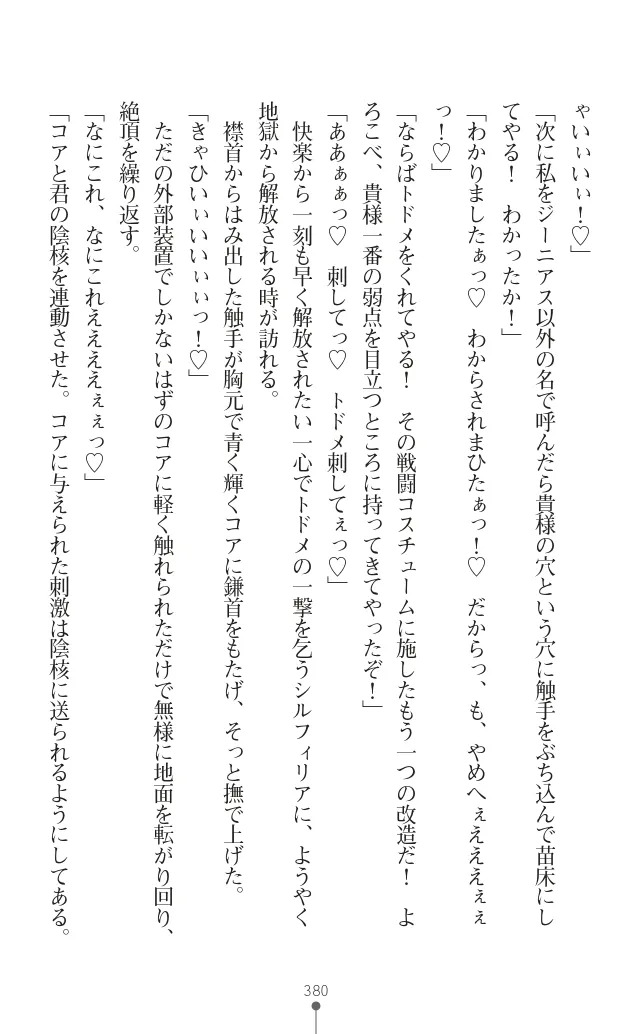 ゃいぃいぃ！♡」
「次に私をジーニアス以外の名で呼んだら貴様の穴という穴に触手をぶち込んで苗床にし
てやる！　わかったか！」
「わかりましたぁっ♡　わからされまひたぁっ！♡　だからっ、も、やめへぇえええぇぇ
っ！♡」
「ならばトドメをくれてやる！　その戦闘コスチュームに施したもう一つの改造だ！　よ
ろこべ、貴様一番の弱点を目立つところに持ってきてやったぞ！」
「ああぁぁっ♡　刺してっ♡　トドメ刺してぇっ♡」
　快楽から一刻も早く解放されたい一心でトドメの一撃を乞うシルフィリアに、ようやく
地獄から解放される時が訪れる。
　襟首からはみ出した触手が胸元で青く輝くコアに鎌首をもたげ、そっと撫で上げた。
「きゃひいぃいいぃぃっ！♡」
　ただの外部装置でしかないはずのコアに軽く触れられただけで無様に地面を転がり回り、
絶頂を繰り返す。
「なにこれ、なにこれえええぇぇっ♡」
「コアと君の陰核を連動させた。コアに与えられた刺激は陰核に送られるようにしてある。
380